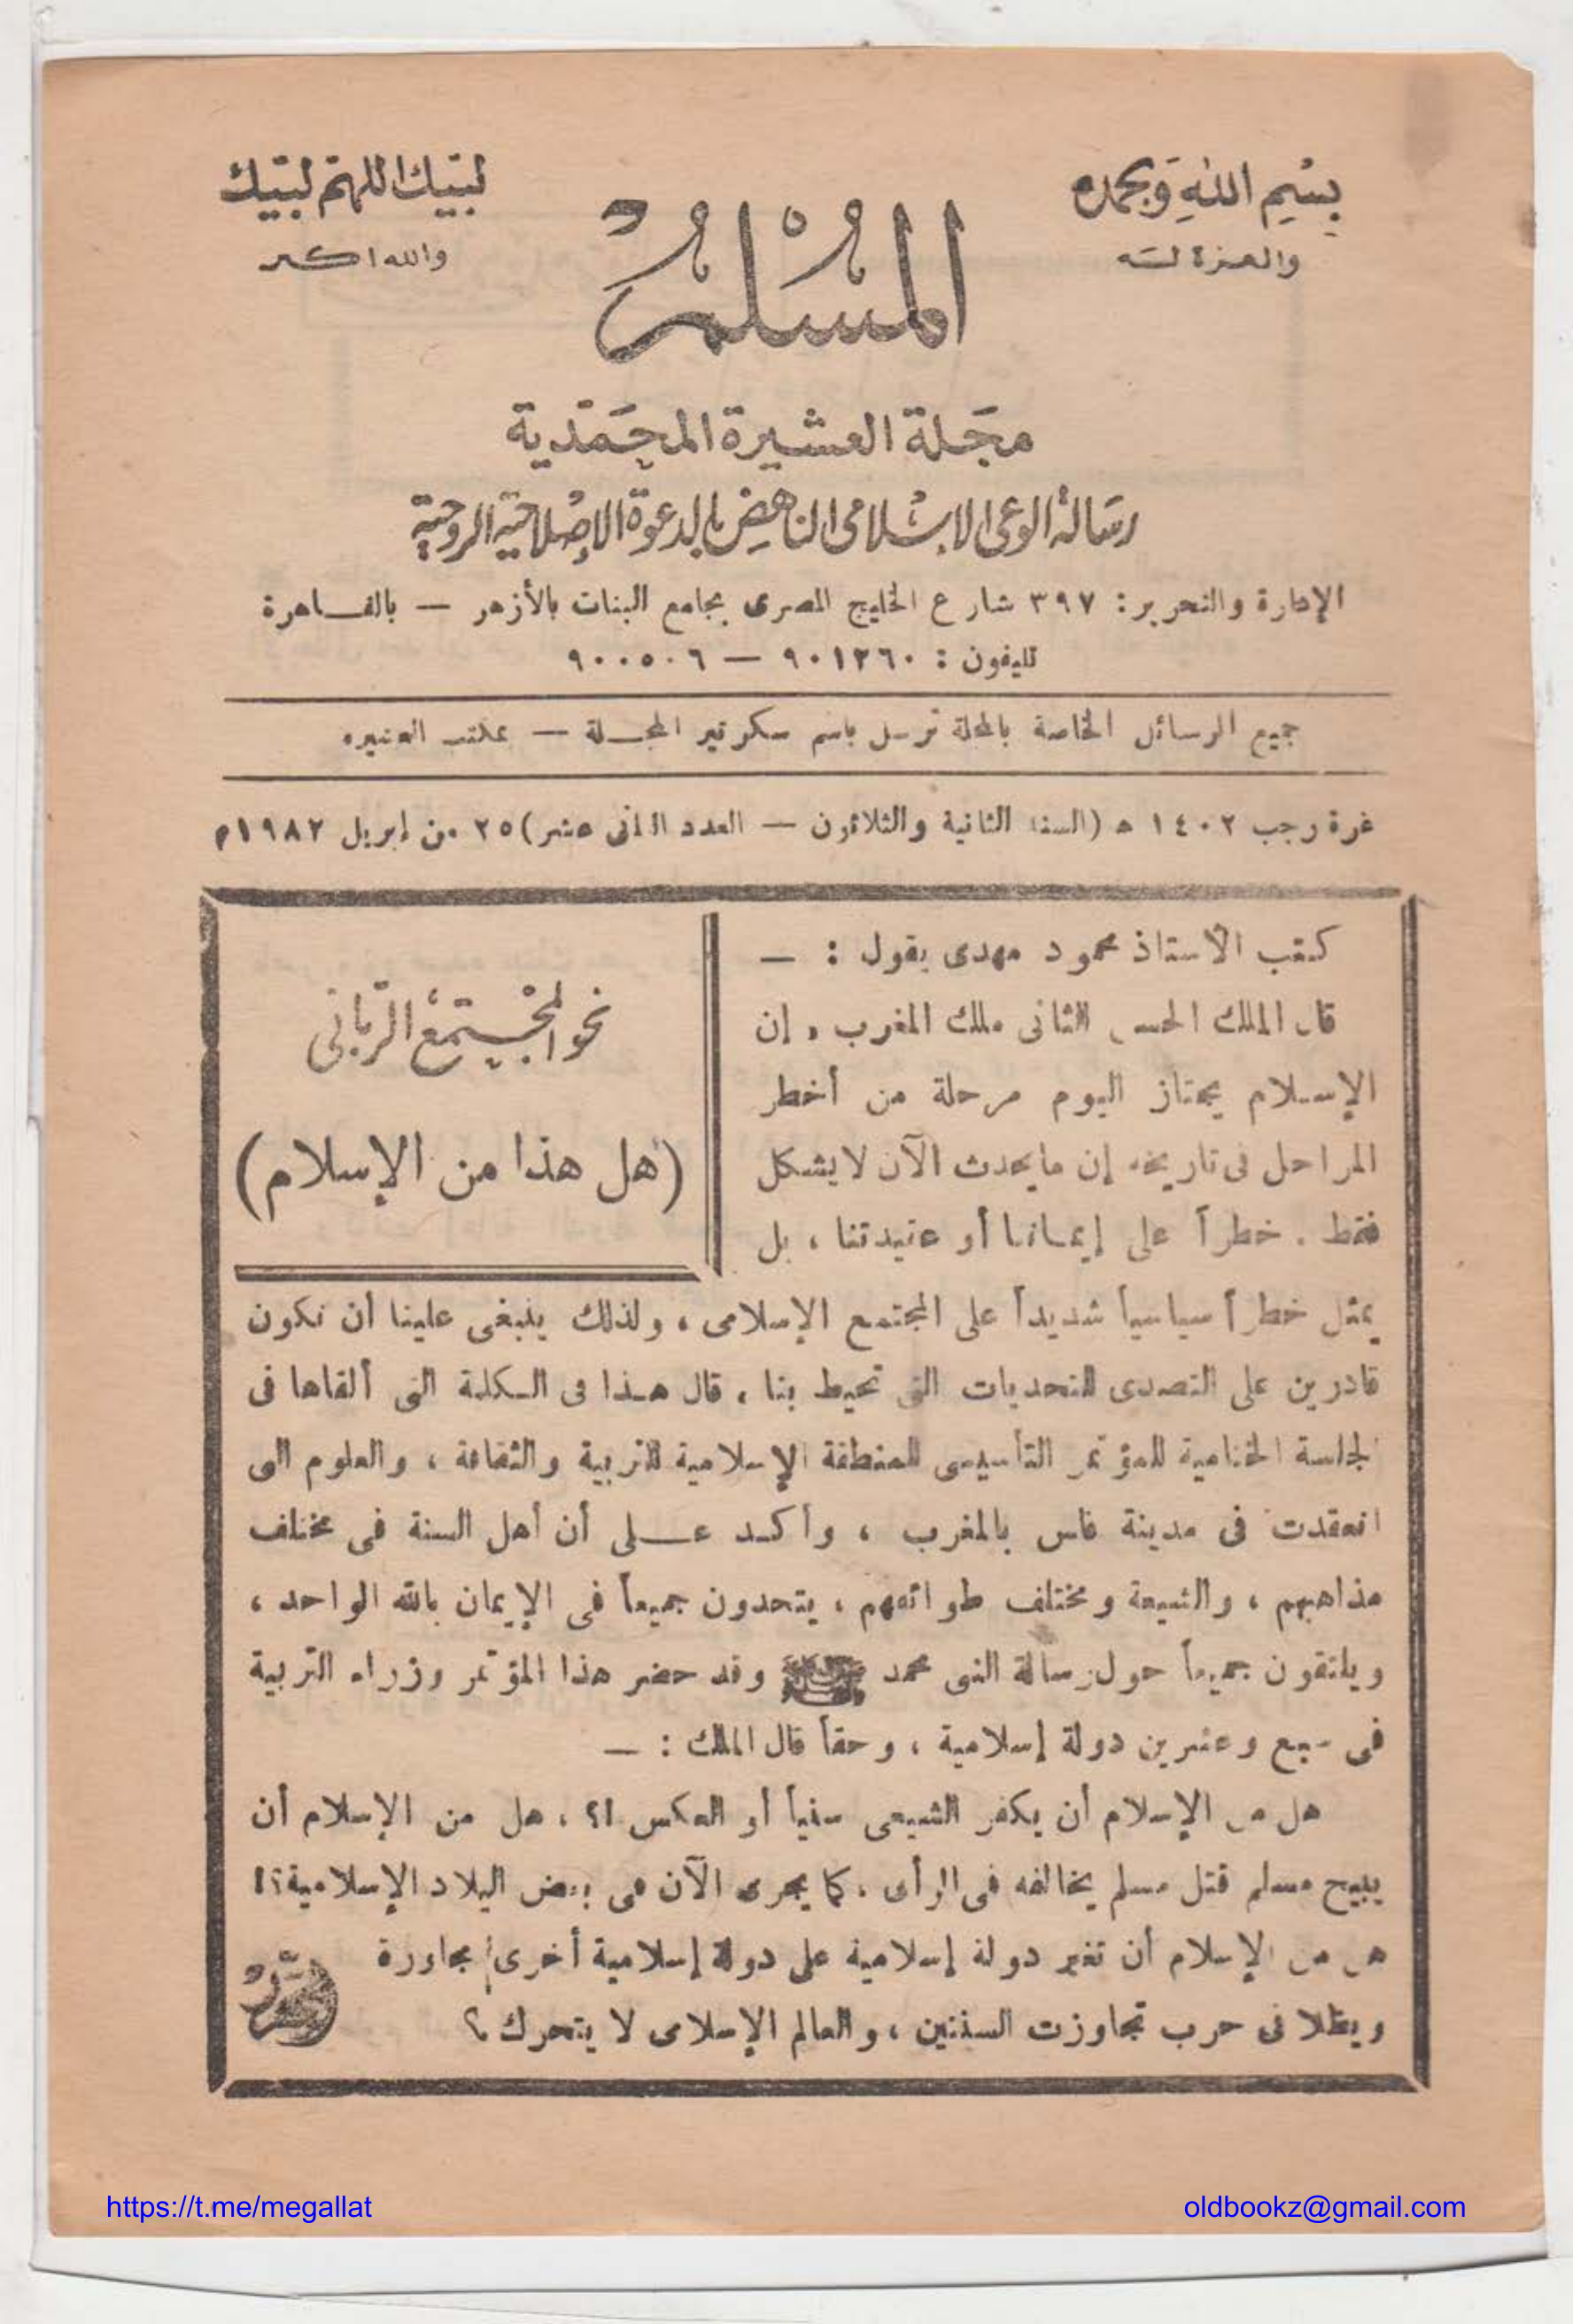 بسم الله وبحمده
والعزة لله
لبيك اللهم لبيك
والله اكبر
المسلم
مجلة العشيرة المحمدية
رسالة الوعى الإسلامى الناهض بالدعوة الإصلاحية الروحية
الإدارة والتحرير: ٣٩٧ شارع الخليج المصرى بجامع البنات بالأزهر — بالقاهرة
تليفون : ٩٠١٢٦٠ — ٩٠٠٥٠٦
جميع الرسائل الخاصة بالمجلة ترسل باسم سكرتير المجلة — بمكتب العشيره
غرة رجب ١٤٠٢ هـ (السنة الثانية والثلاثون — العدد الثانى عشر) ٢٥ من إبريل ١٩٨٢م
نحو المجتمع الربانى
(هل هذا من الإسلام)
كتب الأستاذ محمود مهدى يقول : —
قال الملك الحسن الثانى ملك المغرب . إن
الإسلام يجتاز اليوم مرحلة من أخطر
المراحل فى تاريخه إن ما يحدث الآن لا يشكل
فقط . خطراً على إيماننا أو عقيدتنا ، بل
يمثل خطراً سياسياً شديداً على المجتمع الإسلامى ، ولذلك ينبغى علينا أن نكون
قادرين على التصدى للتحديات التى تحيط بنا ، قال هذا فى الكلمة التى ألقاها فى
الجلسة الختامية للمؤتمر التأسيسى للمنطقة الإسلامية للتربية والثقافة ، والعلوم التى
انعقدت فى مدينة فاس بالمغرب ، وأكد على أن أهل السنة فى مختلف
مذاهبهم ، والشيعة ومختلف طوائفهم ، يتحدون جميعاً فى الإيمان بالله الواحد ،
ويلتقون جميعاً حول رسالة النبى محمد ﷺ وقد حضر هذا المؤتمر وزراء التربية
فى سبع وعشرين دولة إسلامية ، وحقاً قال الملك : —
هل من الإسلام أن يكفر الشيعى سنياً أو العكس ا؟ ، هل من الإسلام أن
يبيح مسلم قتل مسلم يخالفه فى الرأى ، كما يجرى الآن فى بعض البلاد الإسلامية؟!
هل من الإسلام أن تغير دولة إسلامية على دولة إسلامية أخرى مجاورة
ويظلا فى حرب تجاوزت السنتين ، والعالم الإسلامى لا يتحرك ؟
https://t.me/megallat
oldbookz@gmail.com